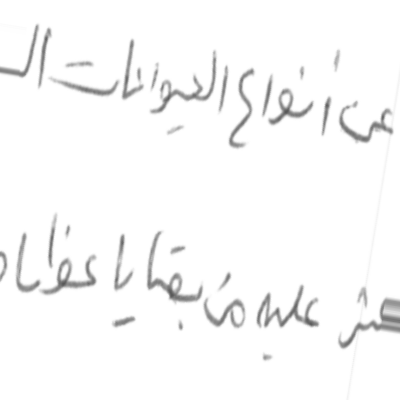 عن أنواع الحيوانات ال
عثر عليه من بقايا عظا